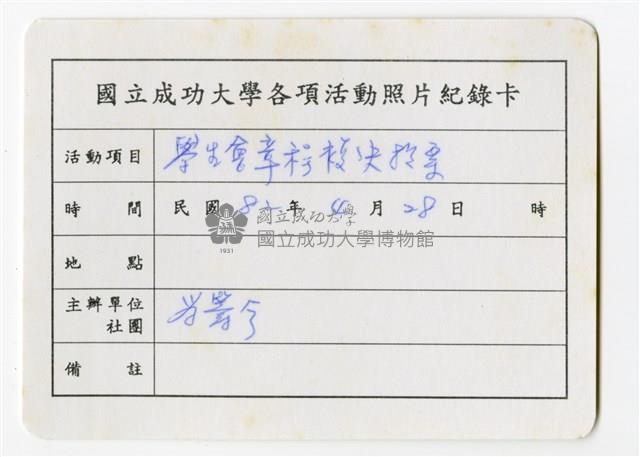 國立成功大學各項活動照片紀錄卡
活動項目 學生會章程複決投票
時 間 民國 82 年 4 月 28 日 時
國立成功大學
國立成功大學博物館
1931
地 點
主辦單位
社團
備 註